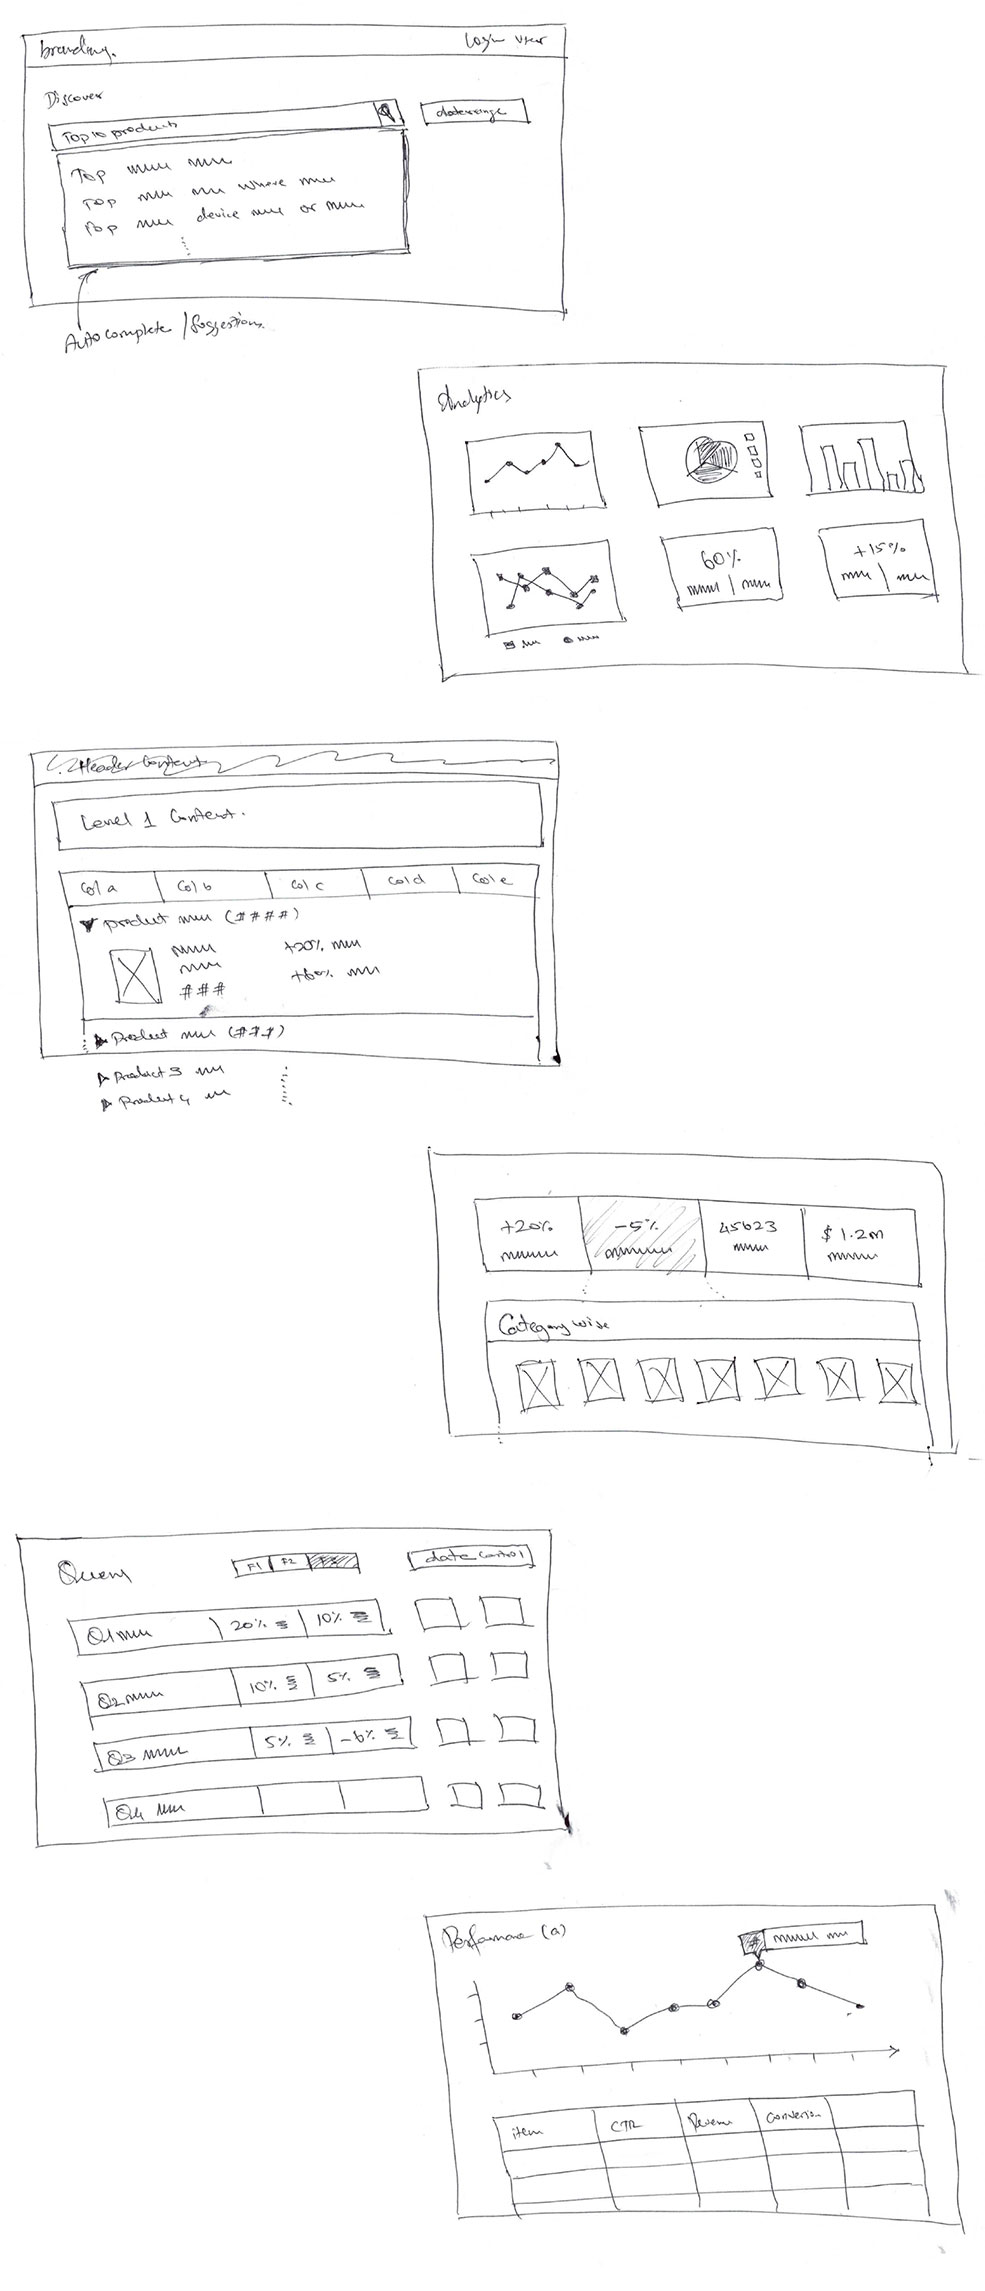 branding.
Login user
Discover
Top 10 products
daterange
Top
Top where
Top device or
Autocomplete / Suggestions.
Analytics
60%
+15%
Header Content
Level 1 Content.
Col a Col b Col c Col d Col e
product (####)
+20%
+60%
###
Product (###)
Product 3
Product 4
+20% -5% 45623 $1.2m
Category wise
Query
F1 F2
date control
Q1 20% 10%
Q2 10% 5%
Q3 5% -6%
Q4
Performance (a)
#
item CTR Revenue Conversion